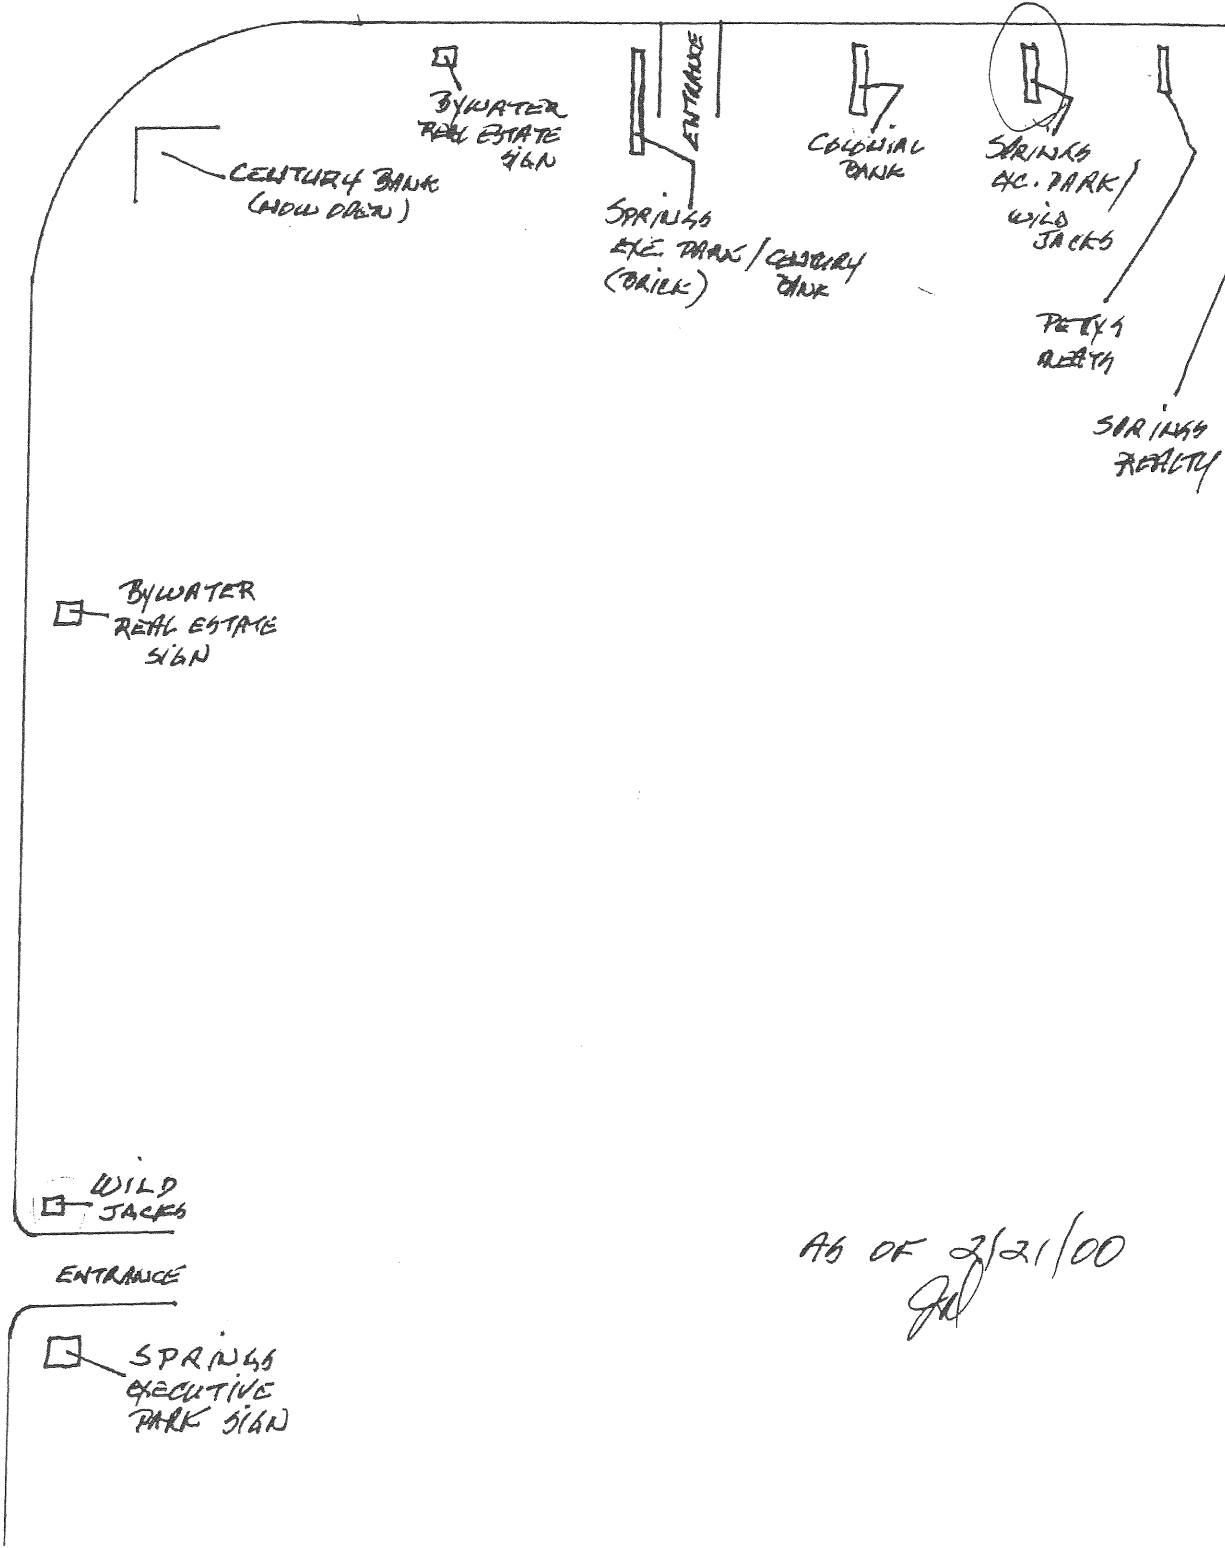 BYWATER
REAL ESTATE
SIGN
ENTRANCE
CENTURY BANK
(NOW OPEN)
SPRINGS
EXE. PARK / CENTURY
(BRICK) BANK
COLONIAL
BANK
SPRINGS
EXC. PARK /
WILD
JACKS
PETRY'S
MEATS
SPRINGS
REALTY
BYWATER
REAL ESTATE
SIGN
WILD
JACKS
ENTRANCE
SPRINGS
EXECUTIVE
PARK SIGN
AS OF 2/21/00